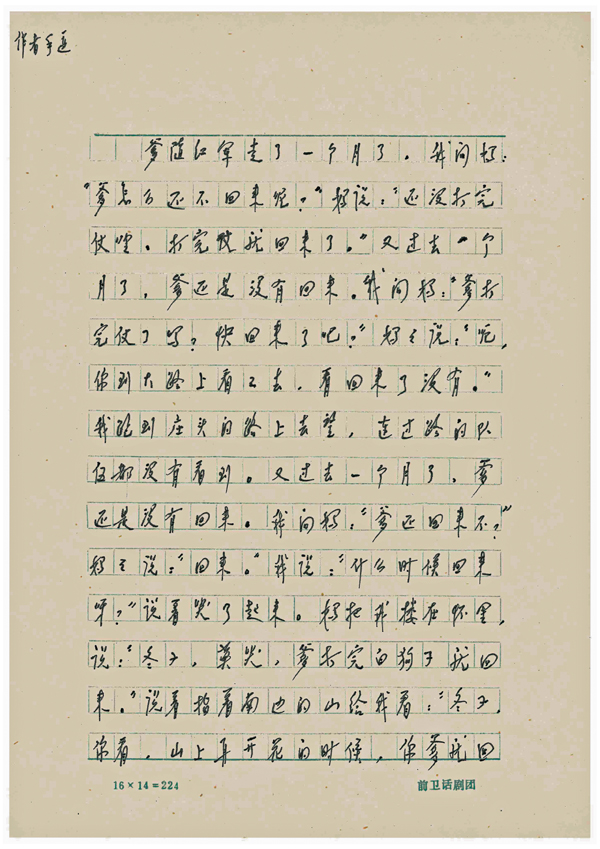 作者手迹
爹随红军走了一个月了。我问妈：
“爹怎么还不回来呢？”妈说：“还没打完
仗哩。打完仗就回来了。”又过去一个
月了，爹还是没有回来。我问妈：“爹打
完仗了吗？快回来了吧？”妈妈说：“呃，
你到大路上看看去，看回来了没有。”
我跑到庄头的路上去望，连过路的队
伍都没有看到。又过去一个月了，爹
还是没有回来。我问妈：“爹还回来不？”
妈妈说：“回来。”我说：“什么时候回来
呀？”说着哭了起来。妈把我搂在怀里，
说：“冬子，莫哭，爹打完白狗子就回
来。”说着指着南边的山给我看：“冬子，
你看，山上再开花的时候，你爹就回
16×14=224
前卫话剧团